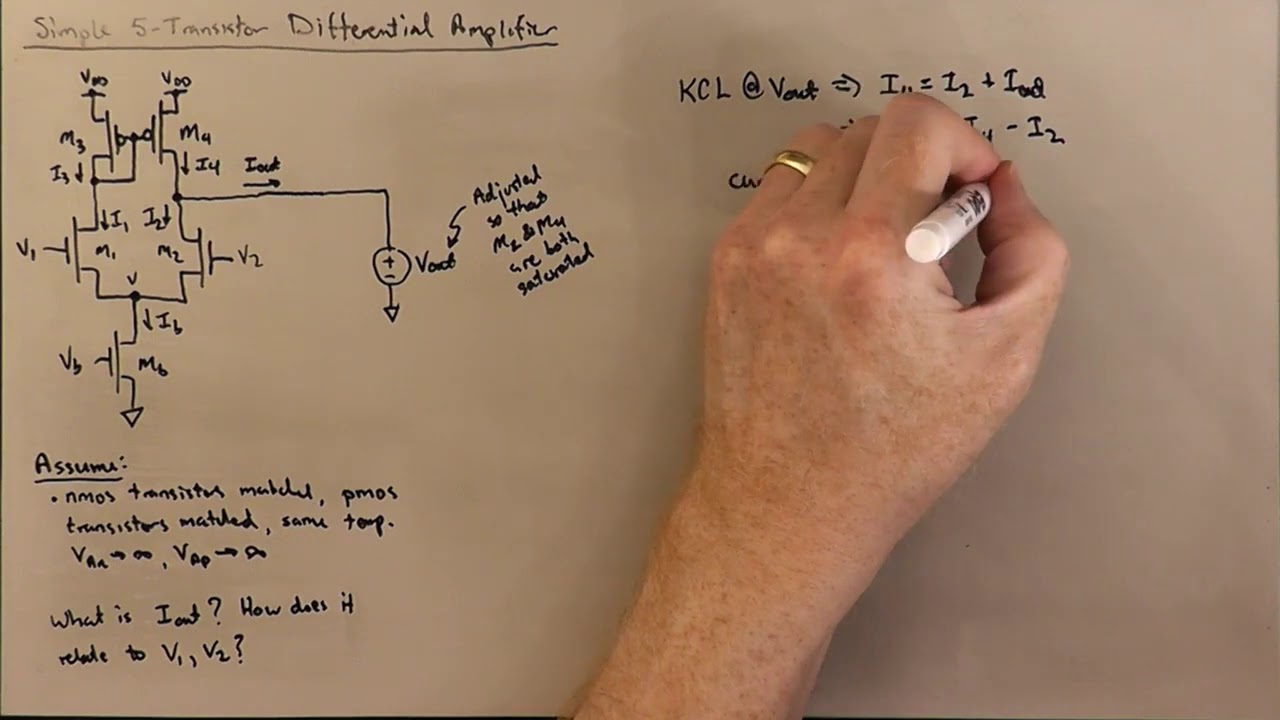 Simple 5-Transistor Differential Amplifier
VDD VDD
M3 M4
I3 I4 Iout
I1 I2
V1 M1 M2 V2
V
Ib
Vb Mb
+
-
Vout
Adjusted
so that
M2 & M4
are both
saturated
Assume:
• nmos transistors matched, pmos
transistors matched, same temp.
VAn → ∞, VAp → ∞
What is Iout? How does it
relate to V1, V2?
KCL @ Vout ⇒ I4 = I2 + Iout
I4 - I2